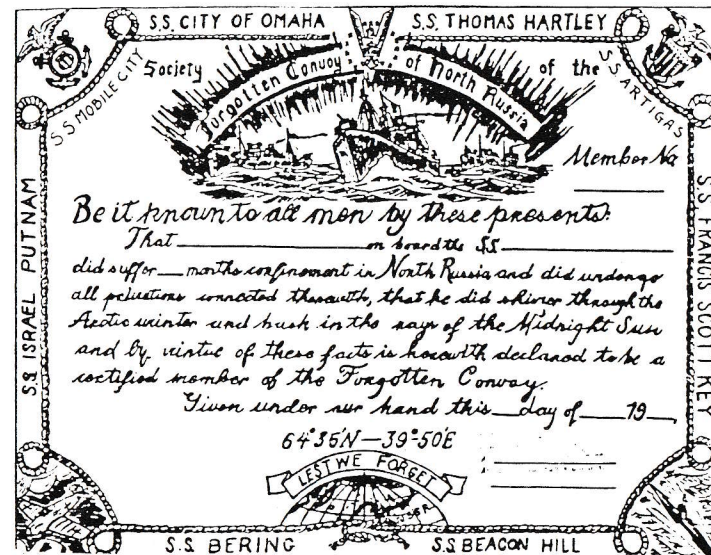 S.S. CITY OF OMAHA
S.S. THOMAS HARTLEY
S.S. MOBILE CITY
S.S. ARTIGAS
Society of the
Forgotten Convoy of North Russia
Member No
S.S. ISRAEL PUTNAM
S.S. FRANCIS SCOTT KEY
Be it known to all men by these presents:
That on board the SS
did suffer months confinement in North Russia and did undergo
all connected therewith, that he did shiver through the
Arctic winter and bask in the rays of the Midnight Sun
and by virtue of these facts is herewith declared to be a
certified member of the Forgotten Convoy.
Given under our hand this day of 19
64°35'N—39°-50'E
LEST WE FORGET
U.S.S.R.
S.S. BERING
S.S. BEACON HILL